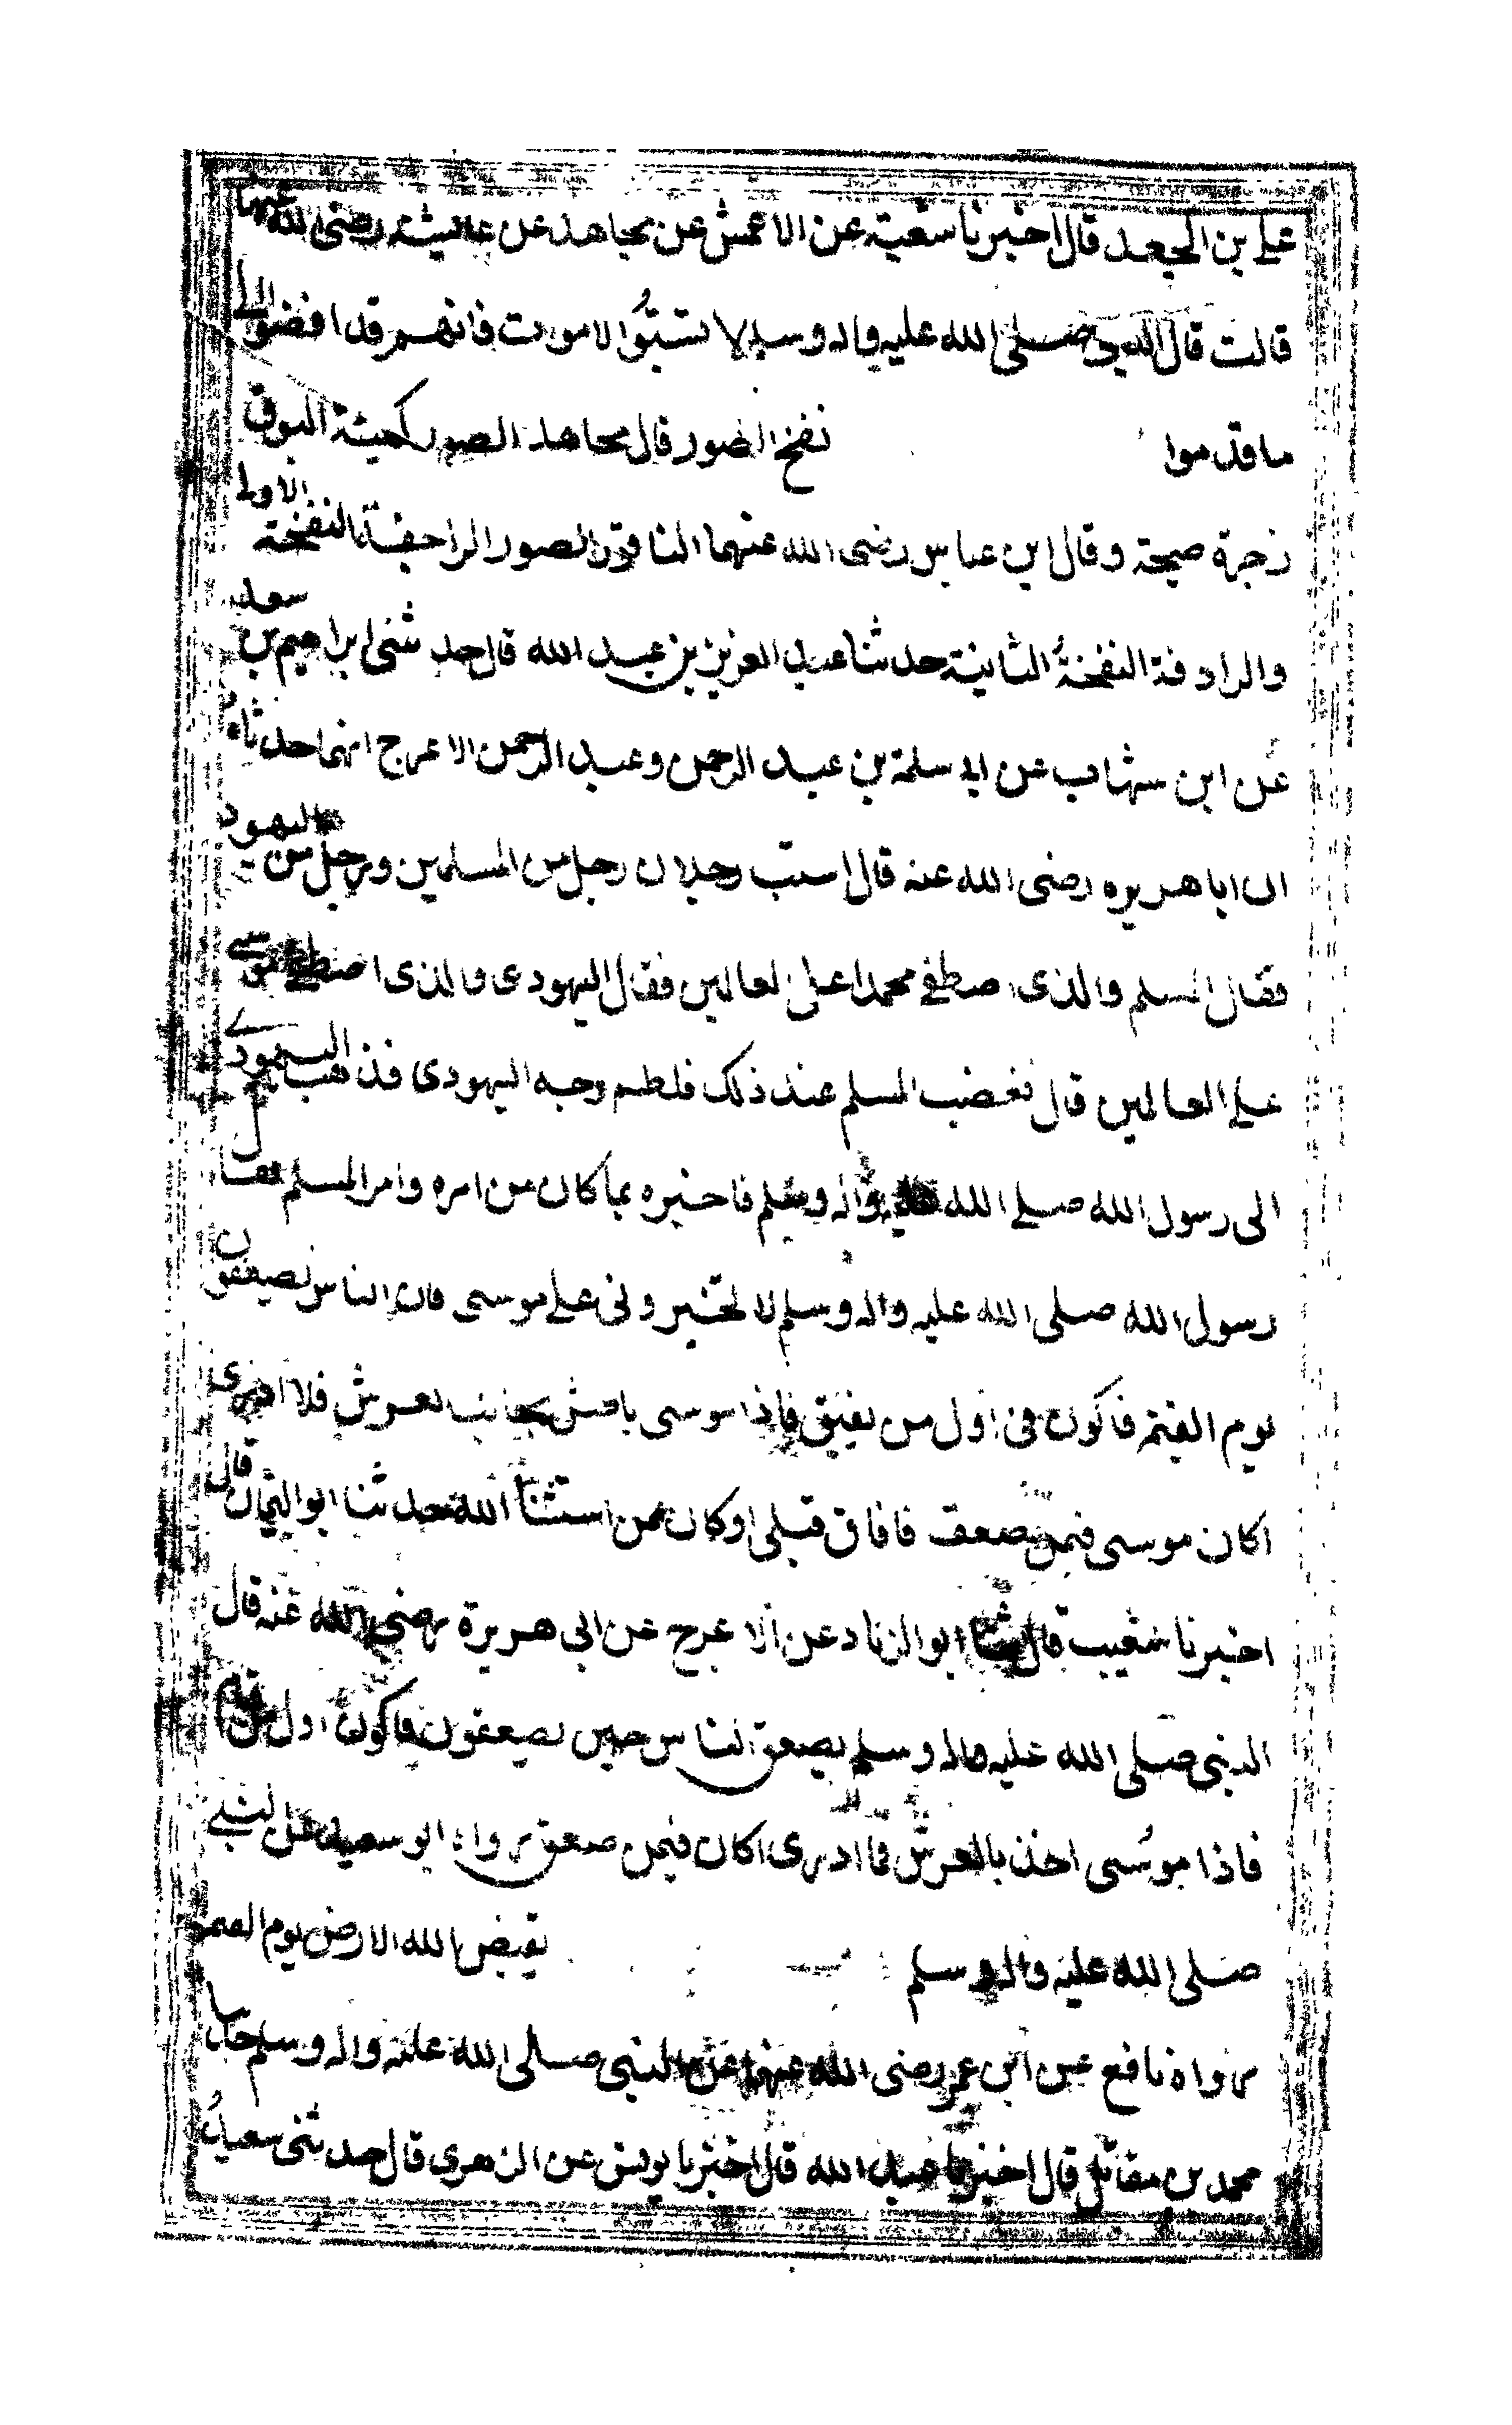 علي بن الجعد قال اخبرنا شعبة عن الاعمش عن مجاهد عن عائشة رضى الله عنها
قالت قال النبي صلى الله عليه واله وسلم لا تسبوا الاموت فانهم قد افضوا الى
ما قدموا نفخ الصور قال مجاهد الصور كهيئة البوق
زجرة صيحة وقال ابن عباس رضى الله عنهما الناقور الصور الراجفة النفخة الاولى
والرادفة النفخة الثانية حدثنا عبد العزيز بن عبد الله قال حدثنى ابراهيم بن سعد
عن ابن شهاب عن ابى سلمة بن عبد الرحمن وعبد الرحمن الاعرج انهما حدثاه
ان ابا هريره رضى الله عنه قال استب رجلان رجل من المسلمين ورجل من اليهود
فقال المسلم والذى اصطفى محمدا على العالمين فقال اليهودى والذى اصطفى موسى
على العالمين قال فغضب المسلم عند ذلك فلطم وجه اليهودى فذهب اليهودى
الى رسول الله صلى الله عليه واله وسلم فاخبره بما كان من امره وامر المسلم فقال
رسول الله صلى الله عليه واله وسلم لا تخيرونى على موسى فان الناس يصعقون
يوم القيمة فاكون فى اول من يفيق فاذا موسى باطش بجانب العرش فلا ادرى
اكان موسى فيمن صعق فافاق قبلى او كان ممن استثنا الله حدثنا ابو اليمان قال
اخبرنا شعيب قال حدثنا ابو الزناد عن الاعرج عن ابى هريرة رضى الله عنه قال
النبى صلى الله عليه واله وسلم يصعق الناس حين يصعقون فاكون اول من قام
فاذا موسى اخذ بالعرش فما ادرى اكان فيمن صعق رواه ابو سعيد عن النبى
صلى الله عليه واله وسلم يقبض الله الارض يوم القيمة
رواه نافع عن ابن عمر رضى الله عنهما عن النبى صلى الله عليه واله وسلم حدثنا
محمد بن مقاتل قال اخبرنا عبد الله قال اخبرنا يونس عن الزهري قال حدثنى سعيد